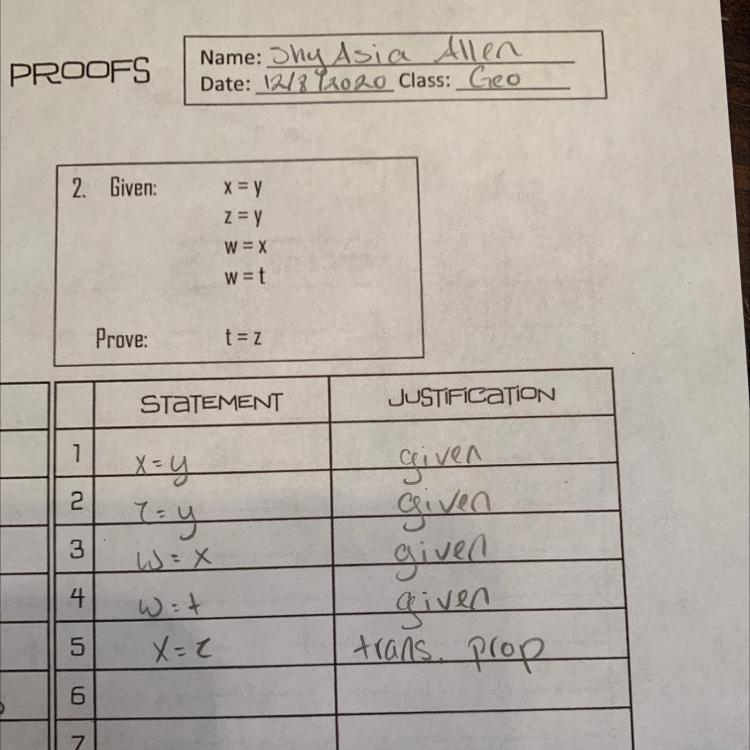 PROOFS
Name: Shy Asia Allen
Date: 12/8/2020 Class: Geo
2. Given: x = y
z = y
w = x
w = t
Prove: t = z
STATEMENT JUSTIFICATION
1 x=y given
2 z=y given
3 w=x given
4 w=t given
5 x=z trans. prop
6
7